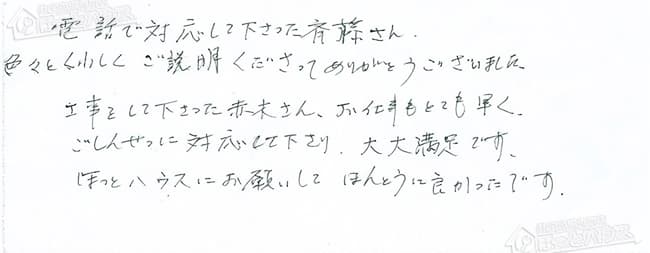 電話で対応して下さった斉藤さん.
色々とくわしくご説明くださってありがとうございました
工事をして下さった赤木さん、お仕事もとても早く、
ごしんせつに対応して下さり、大大満足です、
ほっとハウスにお願いして ほんとうに良かったです.
ほっとハウス